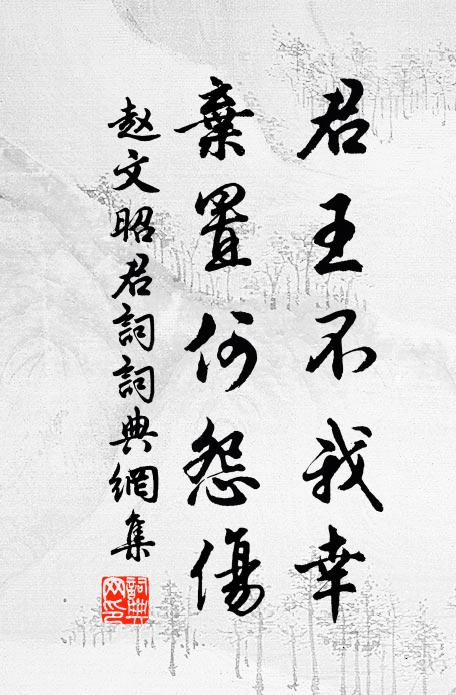 君王不我幸
棄置何怨傷
赵文昭君詞詞典網集